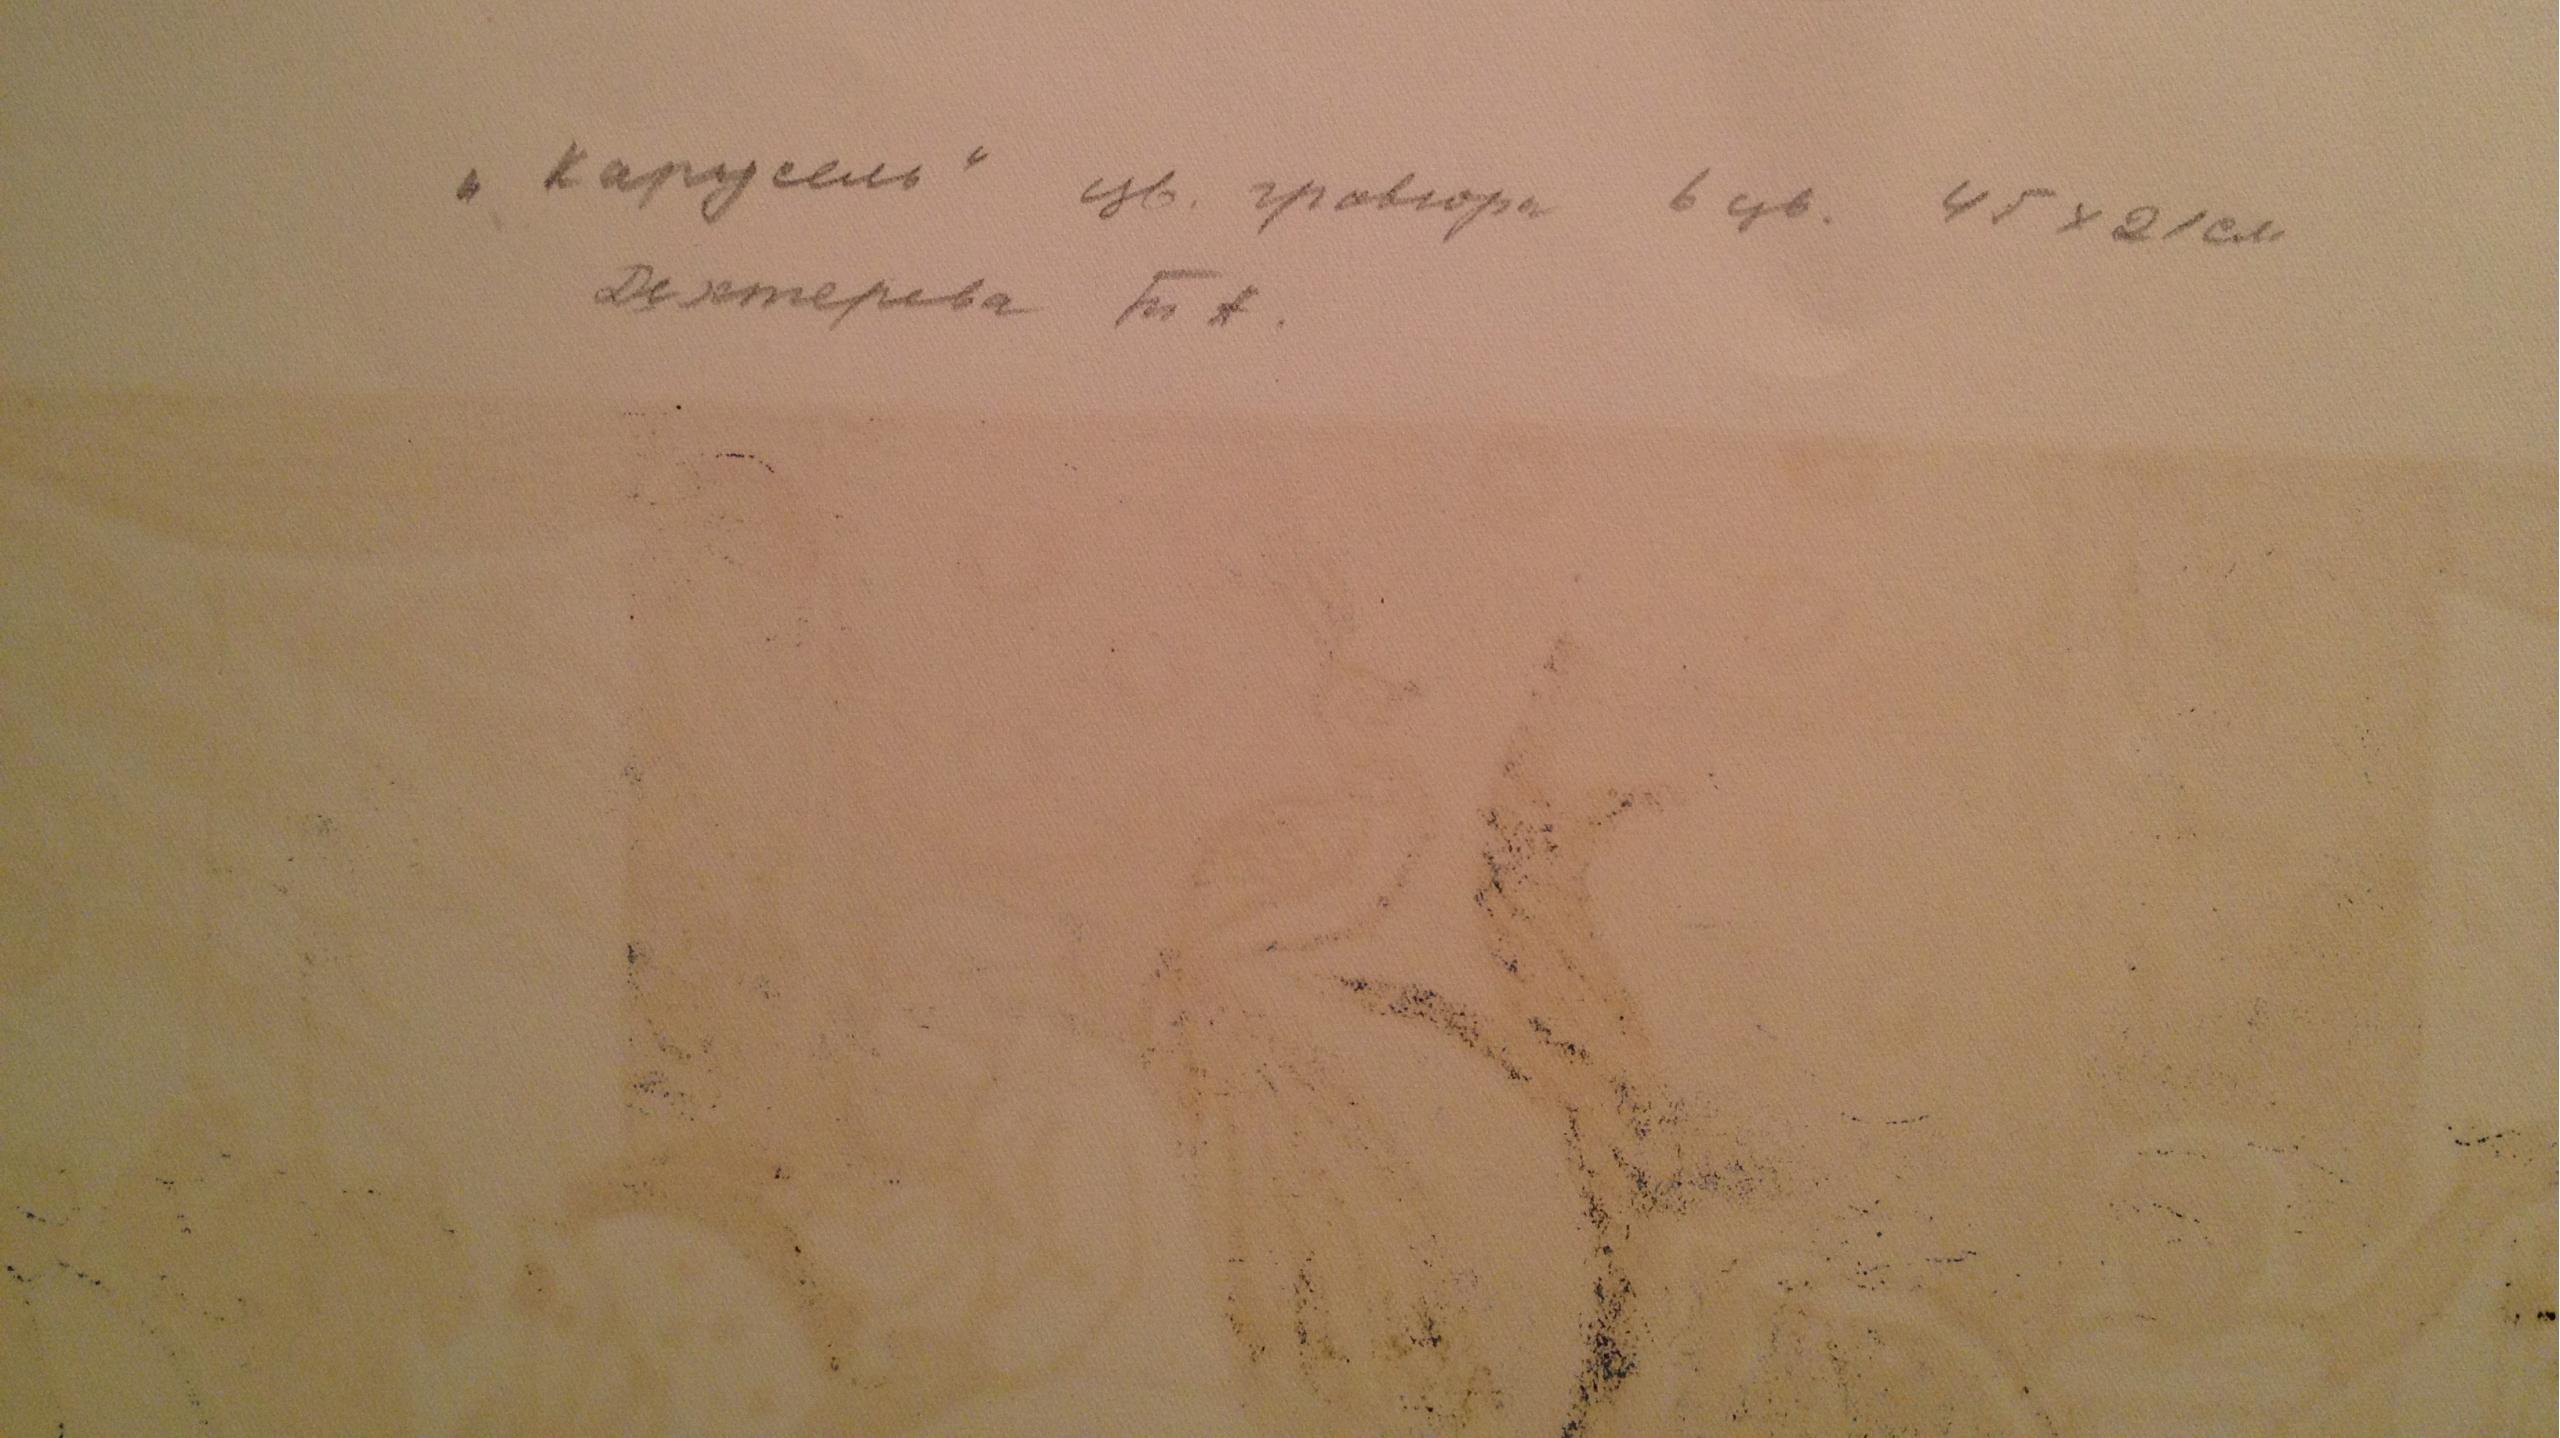 „Карусель“ цв. гравюра 6 цв. 45 x 21 см
Дехтерева